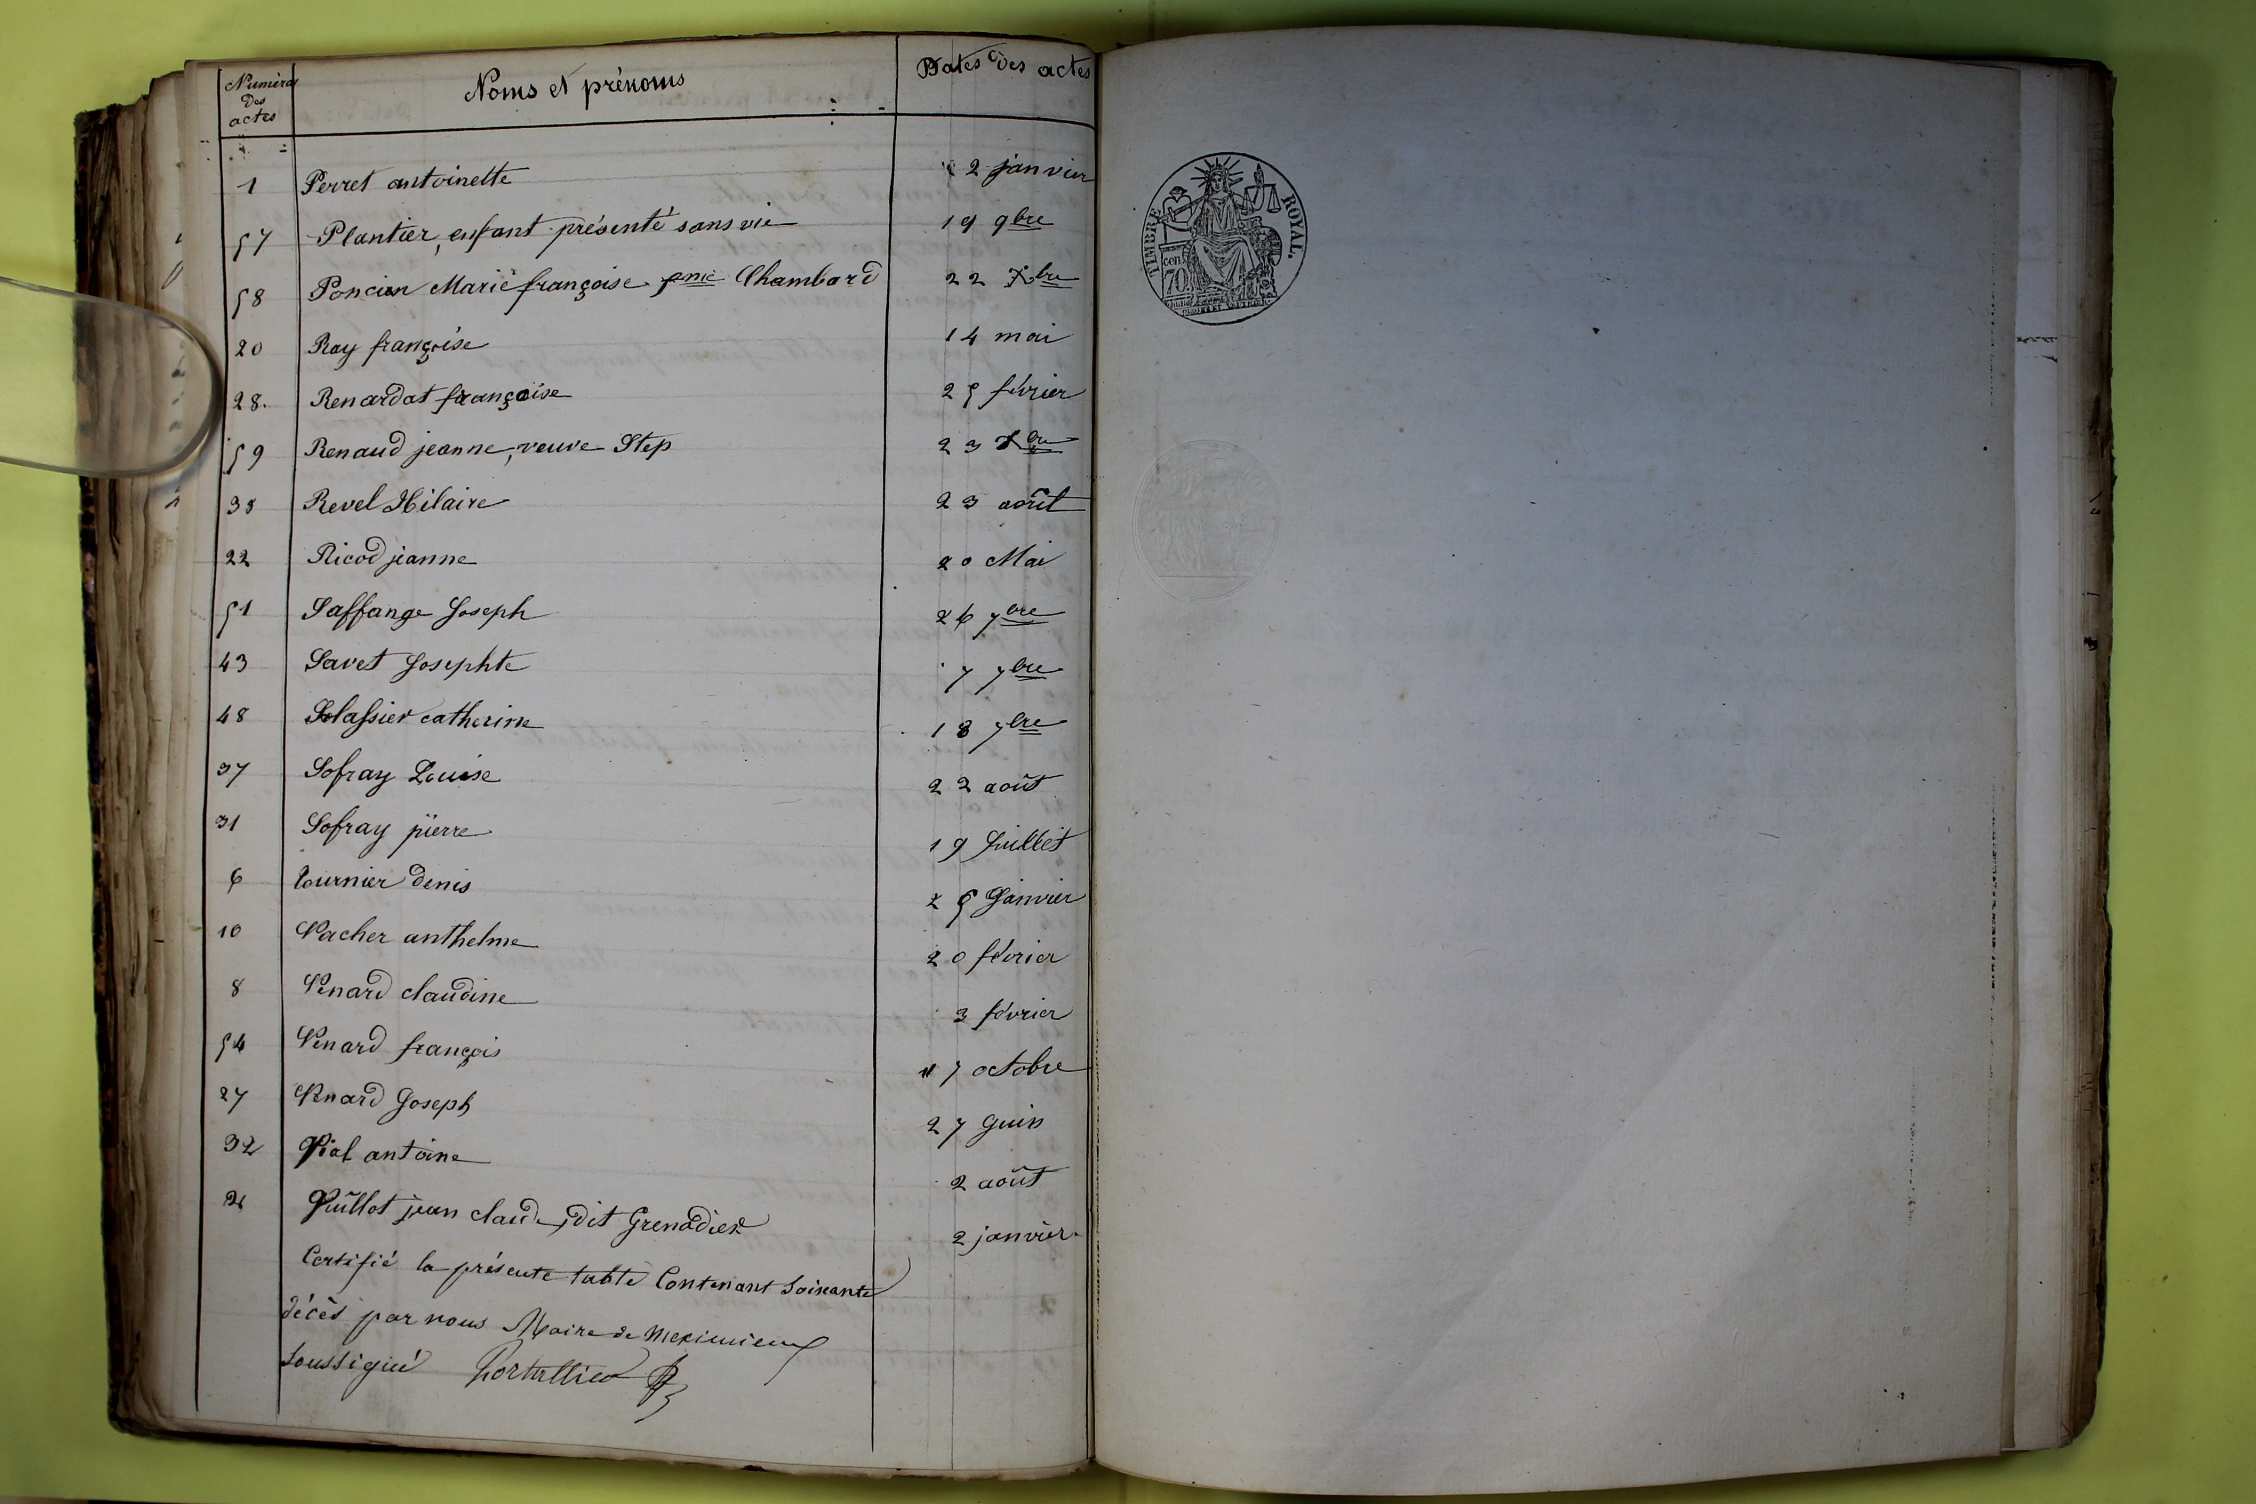 Numéros des actes Noms et prénoms Dates des actes
1 Perret antoinette 2 janvier
57 Plantier, enfant présenté sans vie 19 9bre
58 Poncien Marie françoise fme Chambard 22 Xbre
20 Ray françoise 14 mai
28. Renardat françoise 25 février
59 Renaud jeanne, veuve Step 23 Xbre
38 Revel Hilaire 23 août
22 Ricod jeanne 20 Mai
51 Saffange Joseph 26 7bre
43 Savet Josephte 7 7bre
48 Solassier catherine 18 7bre
37 Sofray Louise 22 août
31 Sofray pierre 19 Juillet
6 tournier denis 25 Janvier
10 Vacher anthelme 20 février
8 Venard claudine 3 février
54 Venard françois 17 octobre
27 Venard Joseph 27 Juin
32 Vial antoine 2 août
2 Vuillot jean claude, dit Grenadier 2 janvier
Certifié la présente table Contenant Soixante
décès par nous Maire de meximieux
soussigné Portallier
TIMBRE ROYAL.
70 cen.